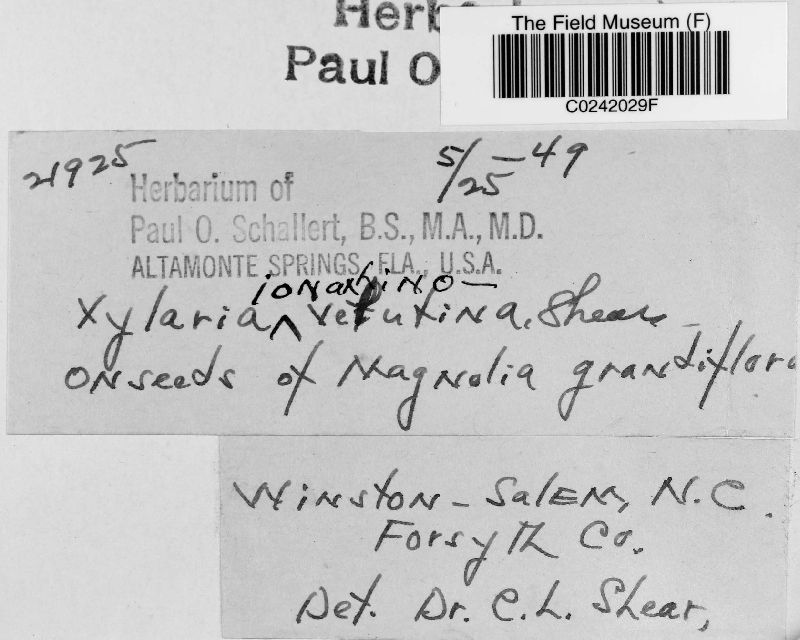 Herb
The Field Museum (F)
Paul O
C0242029F
21925
5/25-49
Herbarium of
Paul O. Schallert, B.S., M.A., M.D.
ALTAMONTE SPRINGS, FLA., U.S.A.
Xylaria Shear
on seeds of Magnolia grandiflora
Winston-Salem, N.C.
Forsyth Co.
Det. Dr. C.L. Shear,